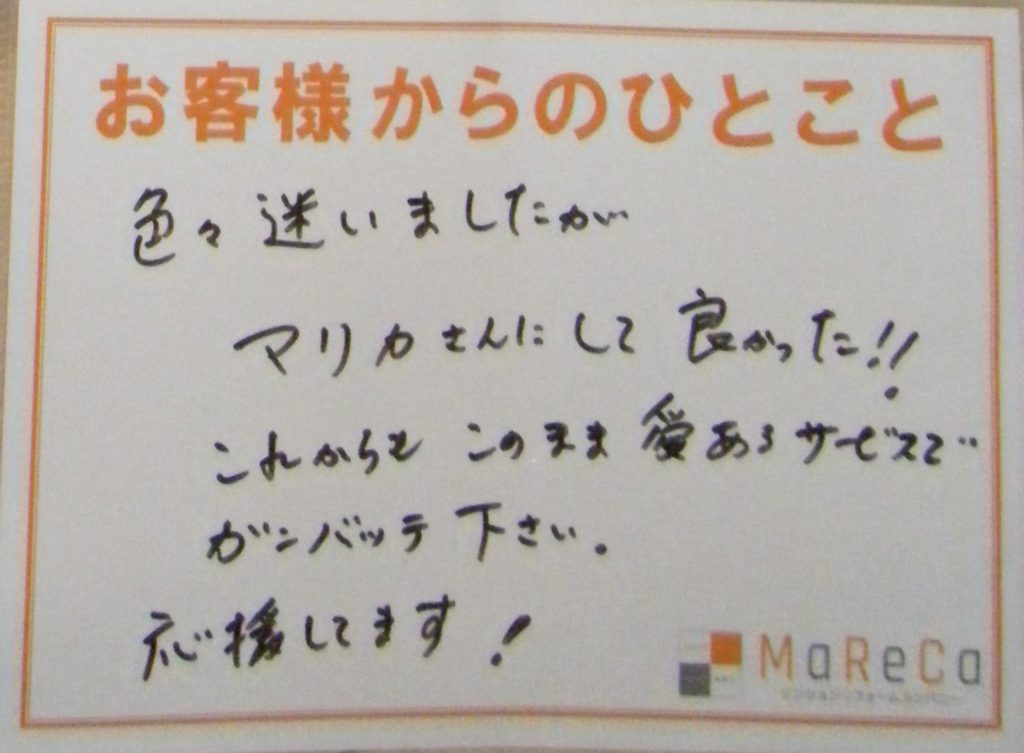 お客様からのひとこと
色々迷いましたが
マリカさんにして良かった!!
これからも このまま愛あるサービスで
ガンバッテ下さい。
応援してます!
MaReCa
マンションリフォームカンパニー